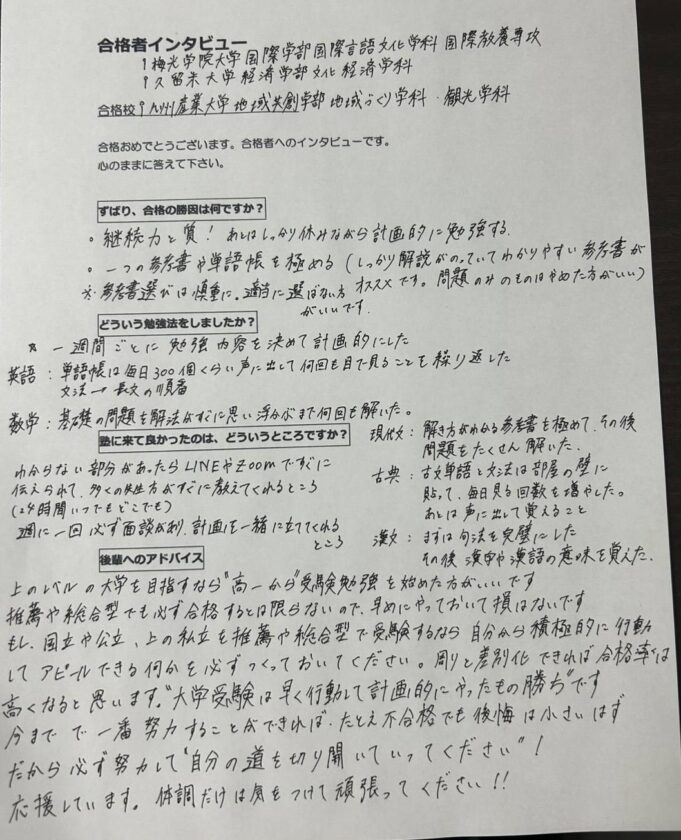 合格者インタビュー
梅光学院大学 国際学部 国際言語文化学科 国際教養専攻
久留米大学 経済学部 文化経済学科
合格校 九州産業大学 地域共創学部 地域づくり学科・観光学科
合格おめでとうございます。合格者へのインタビューです。
心のままに答えて下さい。
ずばり、合格の勝因は何ですか？
。継続力と質！ あとはしっかり休みながら計画的に勉強する.
。一つの参考書や単語帳を極める (しっかり解説がのっていてわかりやすい参考書が
オススメです。問題のみのものはやめた方がいい)
※参考書選びは慎重に。適当に選ばない方
がいいです.
どういう勉強法をしましたか？
* 一週間ごとに勉強内容を決めて計画的にした
英語：単語帳は毎日300個くらい声に出して何回も目で見ることを繰り返した
文法→長文の順番
数学：基礎の問題を解法がすぐに思い浮かぶまで何回も解いた。
塾に来て良かったのは、どういうところですか？
わからない部分があったらLINEやZoomですぐに
伝えられて、多くの先生方がすぐに教えてくれるところ
(24時間いつでもどこでも)
週に一回必ず面談があり、計画を一緒に立ててくれる
ところ
現代文：解き方がわかる参考書を極めて、その後
問題をたくさん解いた.
古典：古文単語と文法は部屋の壁に
貼って、毎日見る回数を増やした。
あとは声に出して覚えること
漢文：まずは句法を完璧にした
その後 漢字や漢語の意味を覚えた.
後輩へのアドバイス
上のレベルの大学を目指すなら"高一から"受験勉強を始めた方がいいです
推薦や総合型でも必ず合格するとは限らないので、早めにやっておいて損はないです
もし、国立や公立、上の私立を推薦や総合型で受験するなら 自分から積極的に行動
してアピールできる何かを必ずつくっておいてください。周りと差別化できれば合格率は
高くなると思います。"大学受験は早く行動して計画的にやったもの勝ち"です
今までで一番努力することができれば、たとえ不合格でも後悔は小さいはず
だから必ず努力して"自分の道を切り開いていってください"！
応援しています。体調だけは気をつけて頑張ってください！！